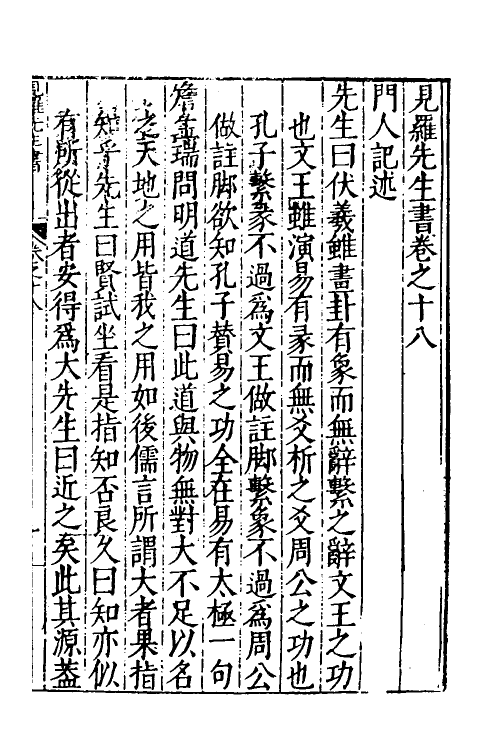 見羅先生書卷之十八
門人記述
先生曰伏羲雖畫卦有象而無辭繫之辭文王之功
也文王雖演易有彖而無爻析之爻周公之功也
孔子繫彖不過爲文王做註脚繫象不過爲周公
做註脚欲知孔子賛易之功全在易有太極一句
詹孟瑞問明道先生曰此道與物無對大不足以名
之天地之用皆我之用如後儒言所謂大者果指
知乎先生曰賢試坐看是指知否良久曰知亦似
有所從出者安得爲大先生曰近之矣此其源葢
見羅先生書
卷之十八
一